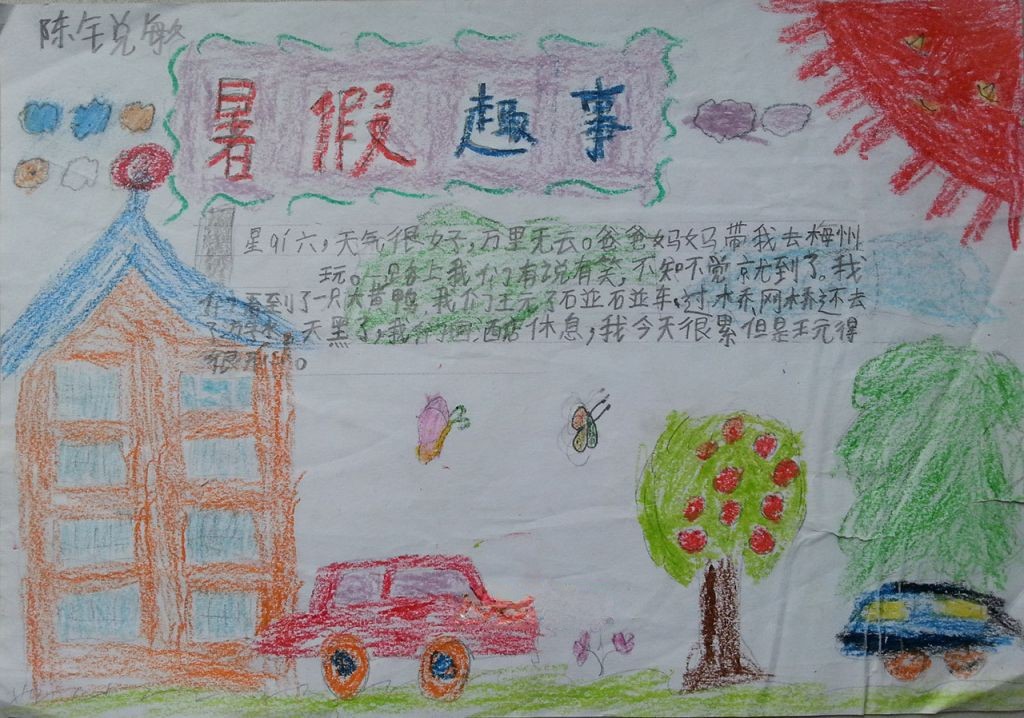 陈全说敏
暑假趣事
星期六，天气很好，万里无云。爸爸妈妈带我去梅州
玩。一路上我们有说有笑，不知不觉就到了。我
们看到了一只大黄鸭，我们玩了石並石並车，过木乔阿木桥还去
了 天黑了，我们回酒店休息，我今天很累但是玩得
很 。